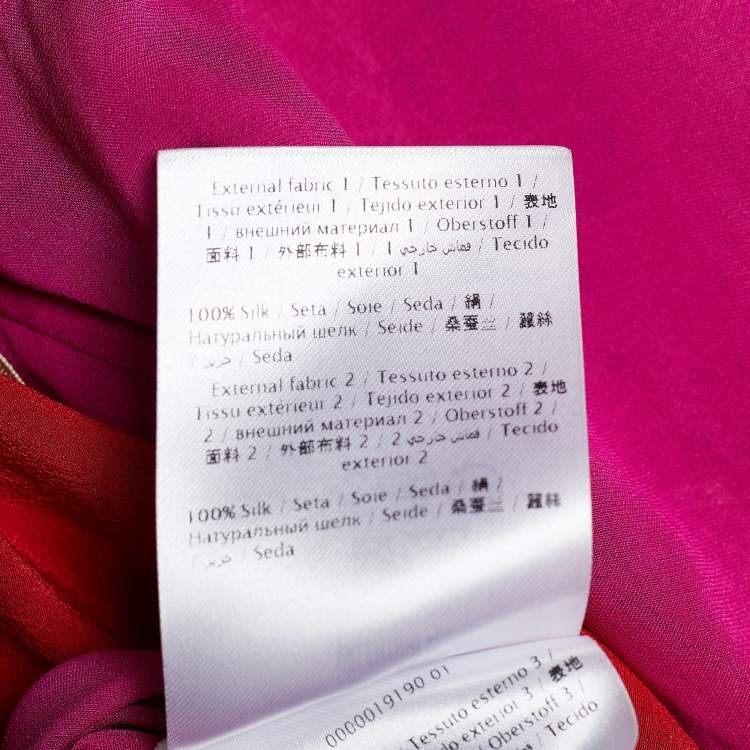 External fabric 1 / Tessuto esterno 1 /
Tissu extérieur 1 / Tejido exterior 1 / 表地
1 / внешний материал 1 / Oberstoff 1 /
面料 1 / 外部布料 1 / قماش خارجي 1 / Tecido
exterior 1
100% Silk / Seta / Soie / Seda / 絹 /
Натуральный шелк / Seide / 桑蚕丝 / 蠶絲
/ حرير / Seda
External fabric 2 / Tessuto esterno 2 /
Tissu extérieur 2 / Tejido exterior 2 / 表地
2 / внешний материал 2 / Oberstoff 2 /
面料 2 / 外部布料 2 / قماش خارجي 2 / Tecido
exterior 2
100% Silk / Seta / Soie / Seda / 絹 /
Натуральный шелк / Seide / 桑蚕丝 / 蠶絲
/ حرير / Seda
0000019190 01
Tessuto esterno 3 /
exterior 3 / 表地
Oberstoff 3 /
3 / Tecido